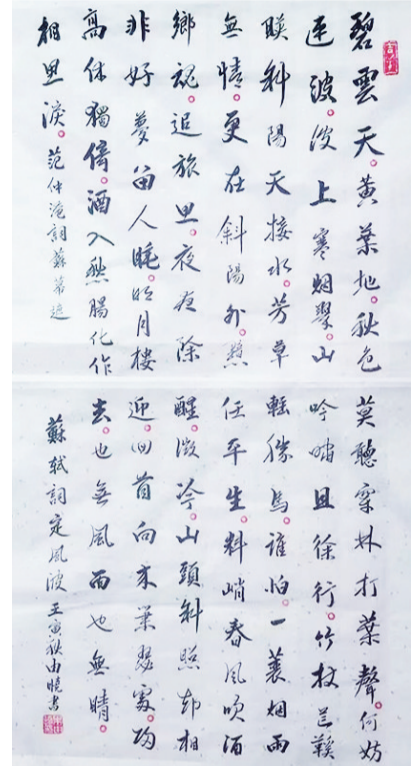 碧雲天。黃葉地。秋色
連波。波上寒烟翠。山
暎斜陽天接水。芳草
無情。更在斜陽外。黯
鄉魂。追旅思。夜夜除
非好夢留人睡。明月樓
高休獨倚。酒入愁腸化作
相思淚。范仲淹詞蘇幕遮
莫聽穿林打葉聲。何妨
吟嘯且徐行。竹杖芒鞵
輕勝馬。誰怕。一蓑烟雨
任平生。料峭春風吹酒
醒。微冷。山頭斜照却相
迎。回首向来蕭瑟處。歸
去。也無風雨也無晴。
蘇軾詞定風波壬寅秋由曉書